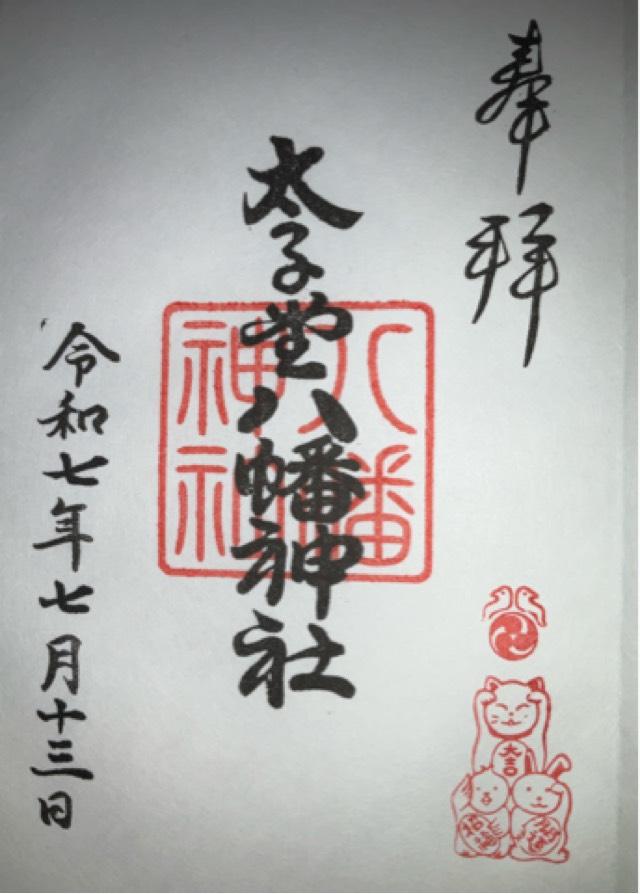 奉拝
太子堂八幡神社
八幡
神社
令和七年七月十三日
大吉